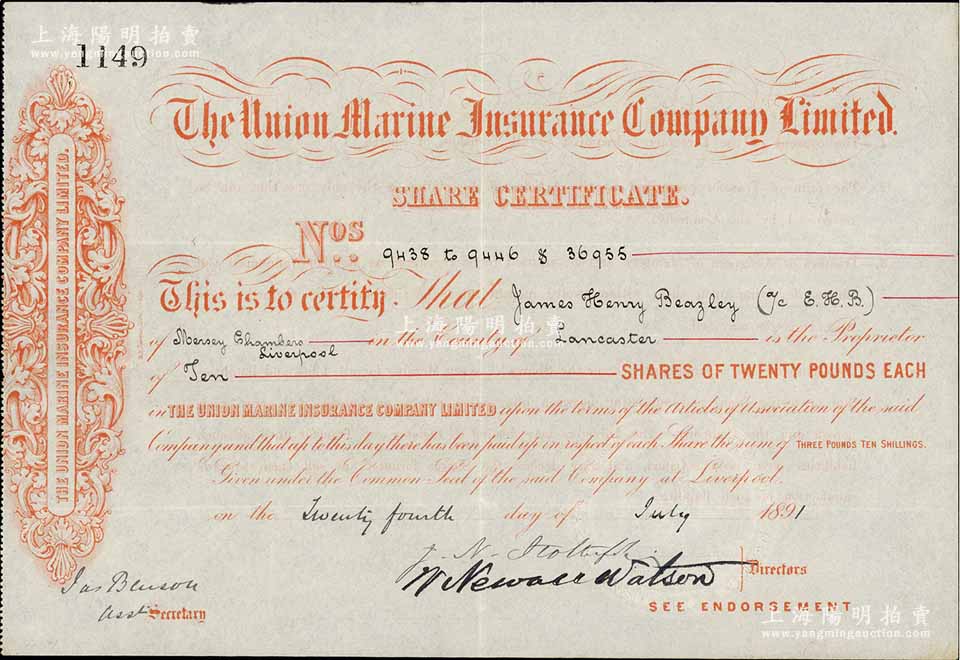 上海陽明拍賣
www.yangmingauction.com
1149
The Union Marine Insurance Company Limited.
SHARE CERTIFICATE.
Nos. 9438 to 9446 & 36955
This is to certify. That James Henry Beazley (a/c E.H.B.)
of Mersey Chambers Liverpool in the County of Lancaster is the Proprietor
上海陽明拍賣
www.yangmingauction.com
of Ten SHARES OF TWENTY POUNDS EACH
in THE UNION MARINE INSURANCE COMPANY LIMITED upon the terms of the Articles of Association of the said
Company and that up to this day there has been paid up in respect of each Share the sum of THREE POUNDS TEN SHILLINGS.
Given under the Common Seal of the said Company at Liverpool.
on the Twenty fourth day of July 1891
W Newall Watson
Directors
Jas Benson
Asst Secretary
SEE ENDORSEMENT
THE UNION MARINE INSURANCE COMPANY LIMITED.
上海陽明拍賣
www.yangmingauction.com